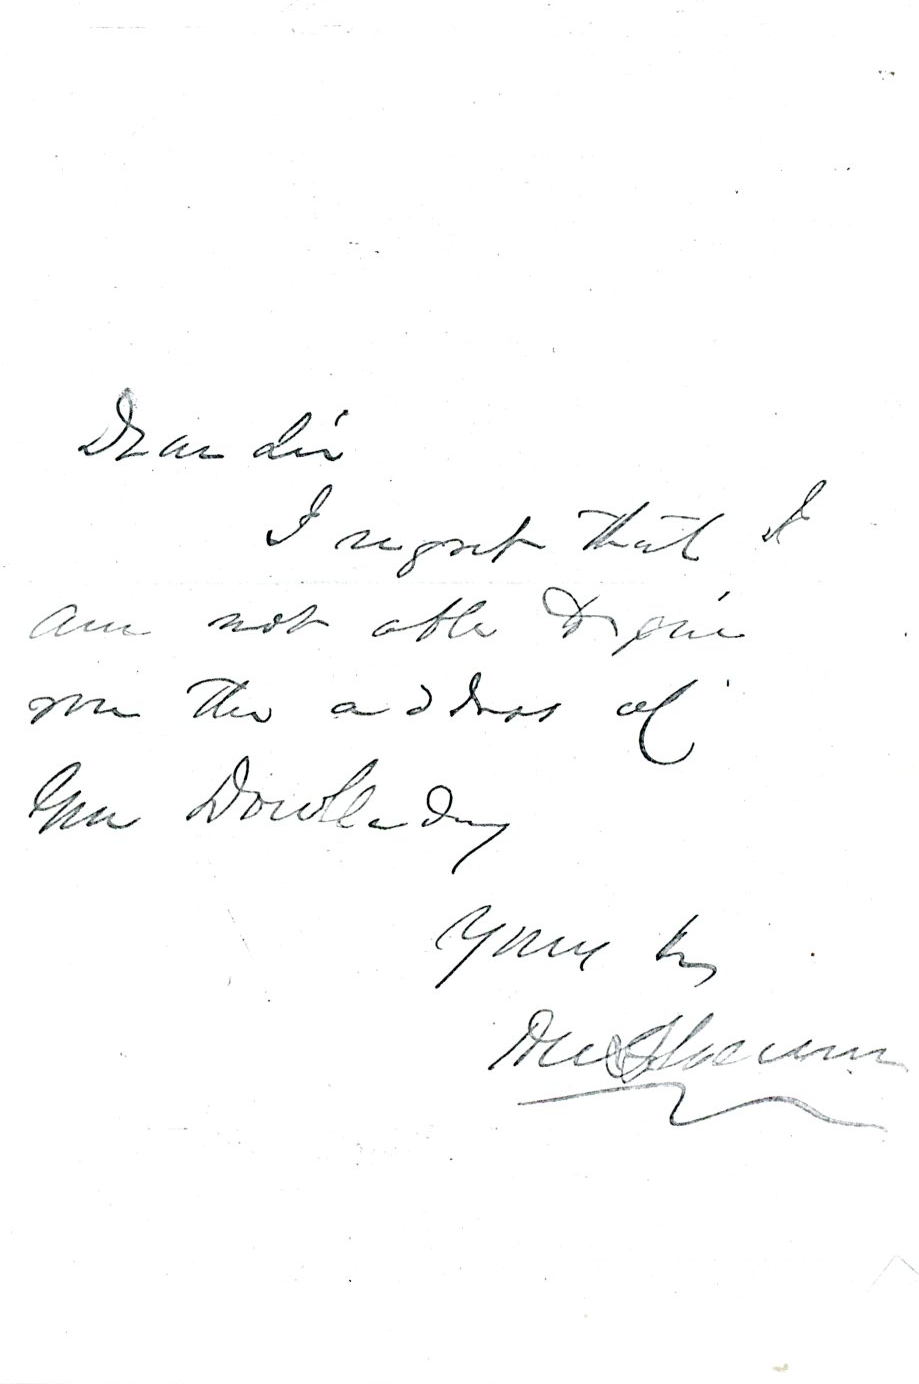 Dear Sir
I regret that I
am not able to give
you the address of
Gen Doubleday
Yours try